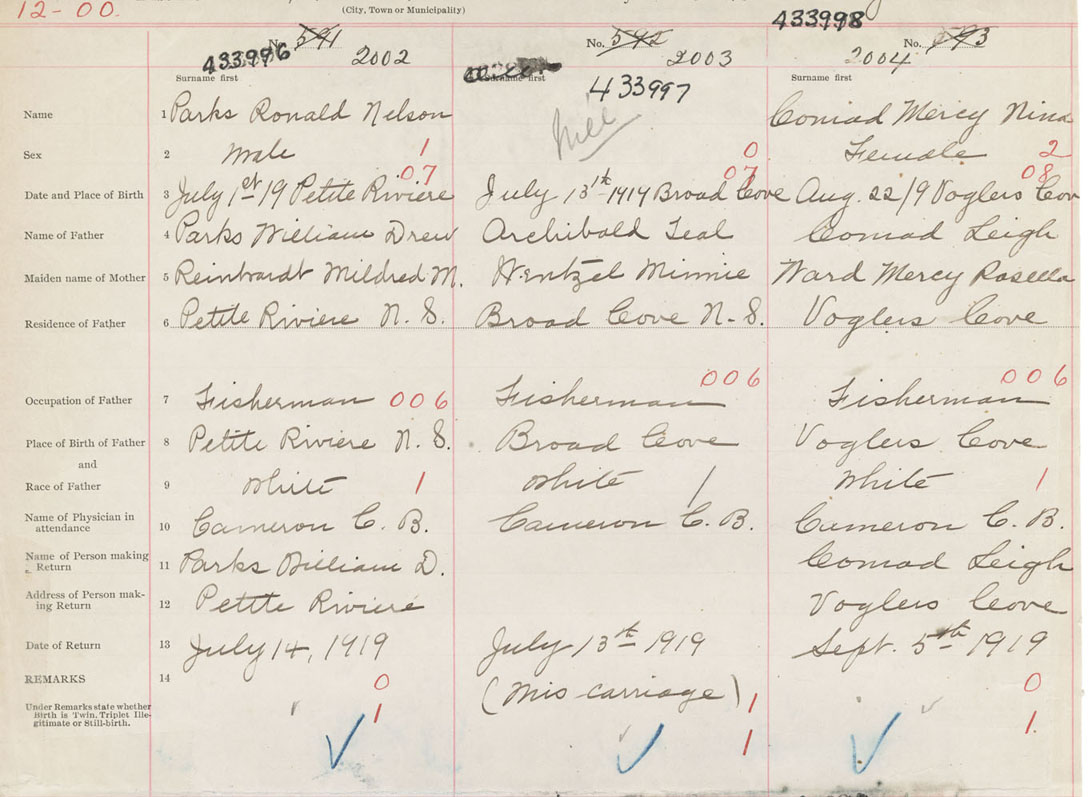 12-00.
(City, Town or Municipality)
433996 No. 591 2002
No. 542 2003
433998 No. 593 2004
Surname first
Surname first
Surname first
433997
Name 1 Parks Ronald Nelson
Nil
Conrad Mercy Nina
Sex 2 Male 1
0
Female 2
07
07
08
Date and Place of Birth 3 July 1st 19 Petite Riviere
July 13th 1919 Broad Cove
Aug. 22/19 Voglers Cov
Name of Father 4 Parks William Drew
Archibald Teal
Conrad Leigh
Maiden name of Mother 5 Reinhardt Mildred M.
Wentzel Minnie
Ward Mercy Rosella
Residence of Father 6 Petite Riviere N. S.
Broad Cove N. S.
Voglers Cove
Occupation of Father 7 Fisherman 006
Fisherman 006
Fisherman 006
Place of Birth of Father 8 Petite Riviere N. S.
Broad Cove
Voglers Cove
and
Race of Father 9 White 1
White 1
White 1
Name of Physician in
attendance 10 Cameron C. B.
Cameron C. B.
Cameron C. B.
Name of Person making
Return 11 Parks William D.
Conrad Leigh
Address of Person mak-
ing Return 12 Petite Riviere
Voglers Cove
Date of Return 13 July 14, 1919
July 13th 1919
Sept. 5th 1919
REMARKS 14
0
(Mis carriage) 1
0
Under Remarks state whether
Birth is Twin, Triplet Ille-
gitimate or Still-birth.
1
1
1.